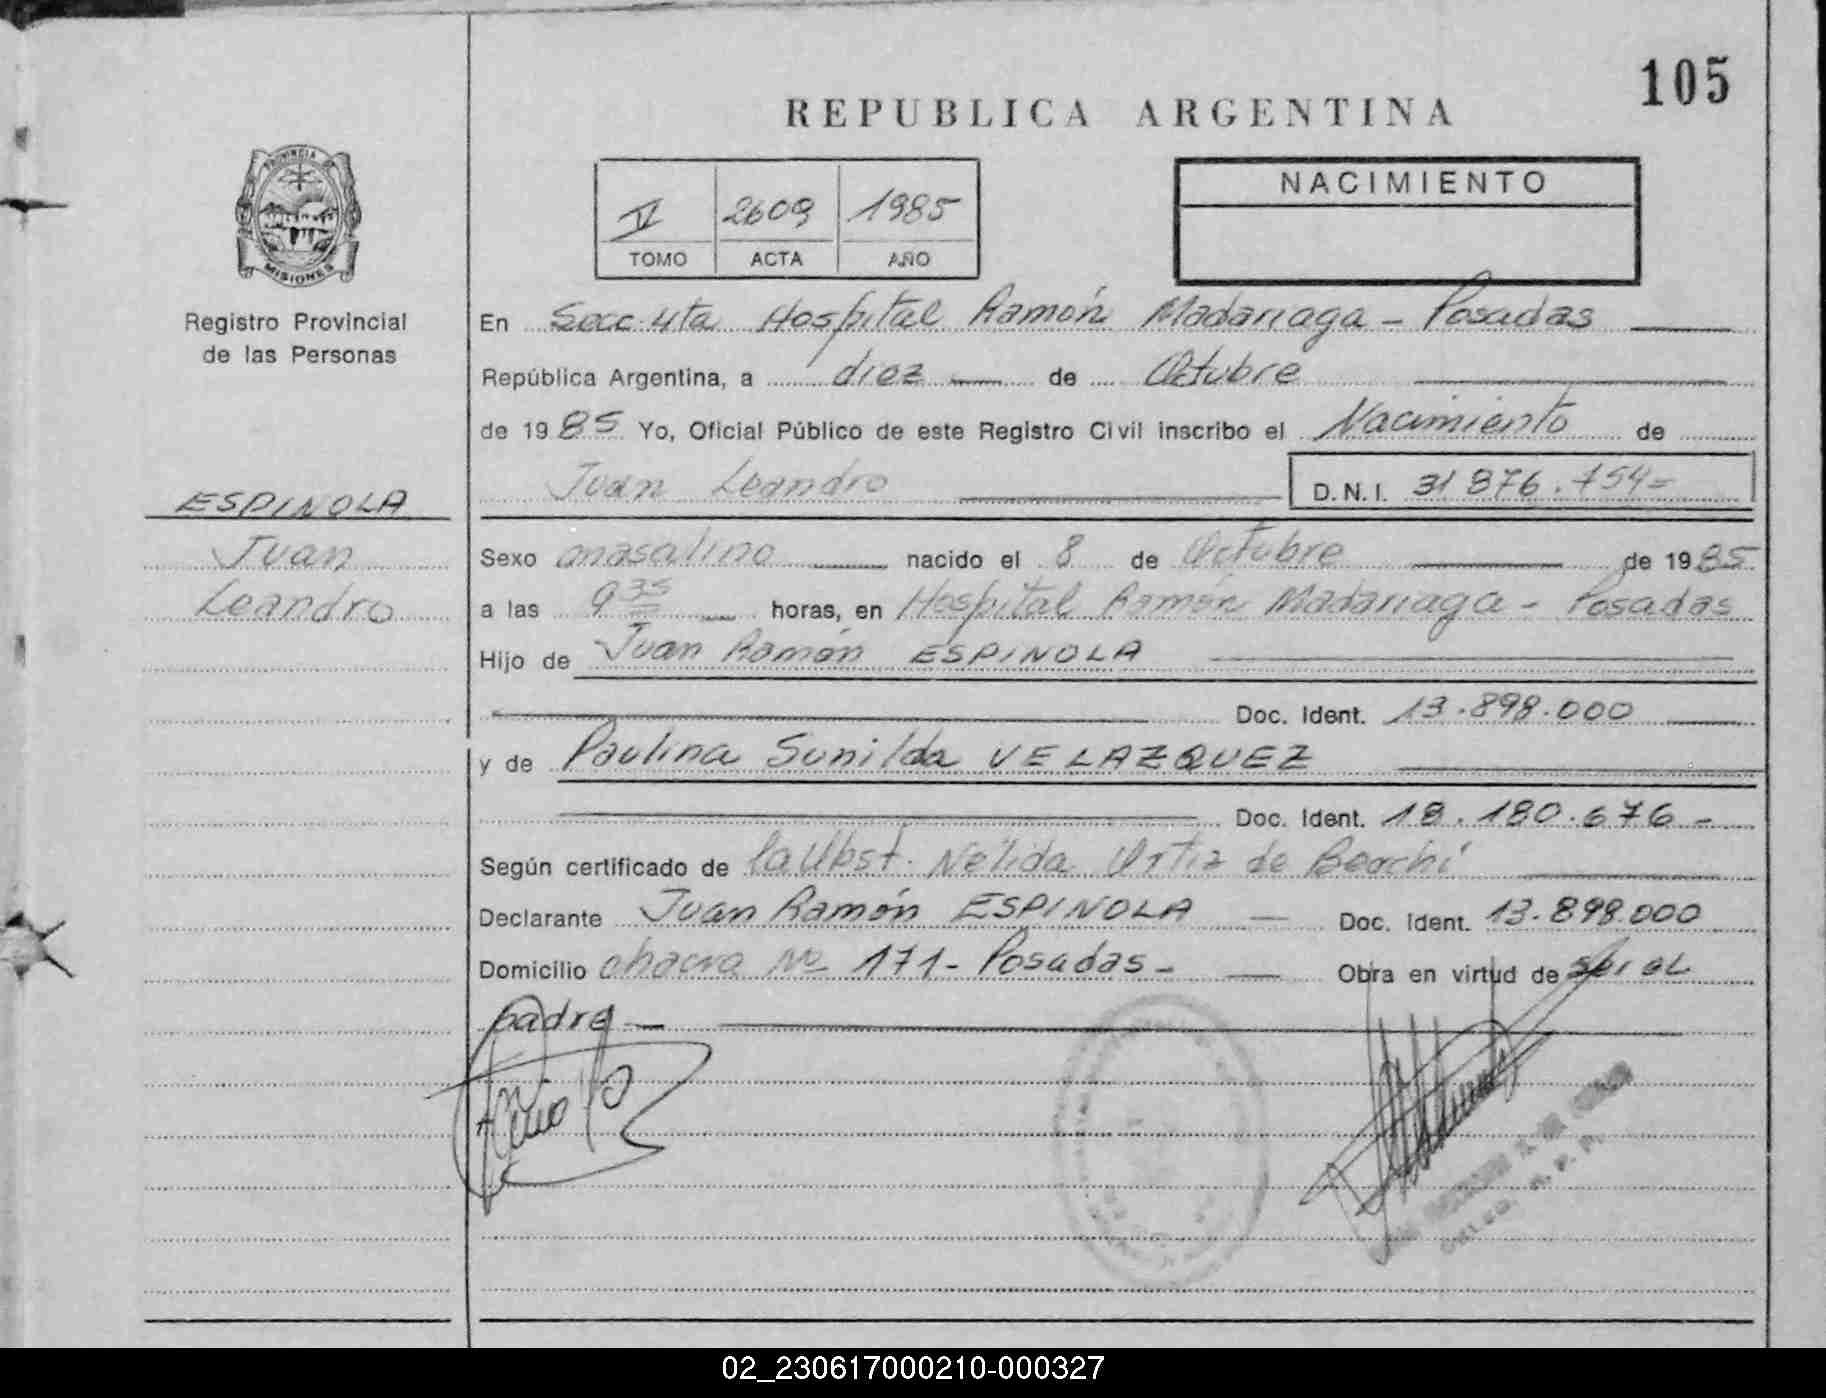 105
REPUBLICA ARGENTINA
PROVINCIA DE
MISIONES
Registro Provincial
de las Personas
V 2609 1985
TOMO ACTA AÑO
NACIMIENTO
En Secc. 4ta Hospital Ramón Madariaga - Posadas
República Argentina, a diez de Octubre
de 1985 Yo, Oficial Público de este Registro Civil inscribo el Nacimiento de
Juan Leandro D.N.I. 31 876.754=
ESPINOLA
Juan
Leandro
Sexo masculino nacido el 8 de Octubre de 1985
a las 9 35 horas, en Hospital Ramón Madariaga - Posadas
Hijo de Juan Ramón ESPINOLA
Doc. Ident. 13.898.000
y de Paulina Sunilda VELAZQUEZ
Doc. Ident. 18.180.676 -
Según certificado de la Obst. Nélida Ortiz de
Declarante Juan Ramón ESPINOLA - Doc. Ident. 13.898.000
Domicilio chacra Nº 171 - Posadas - Obra en virtud de ser el
padre
02_230617000210-000327